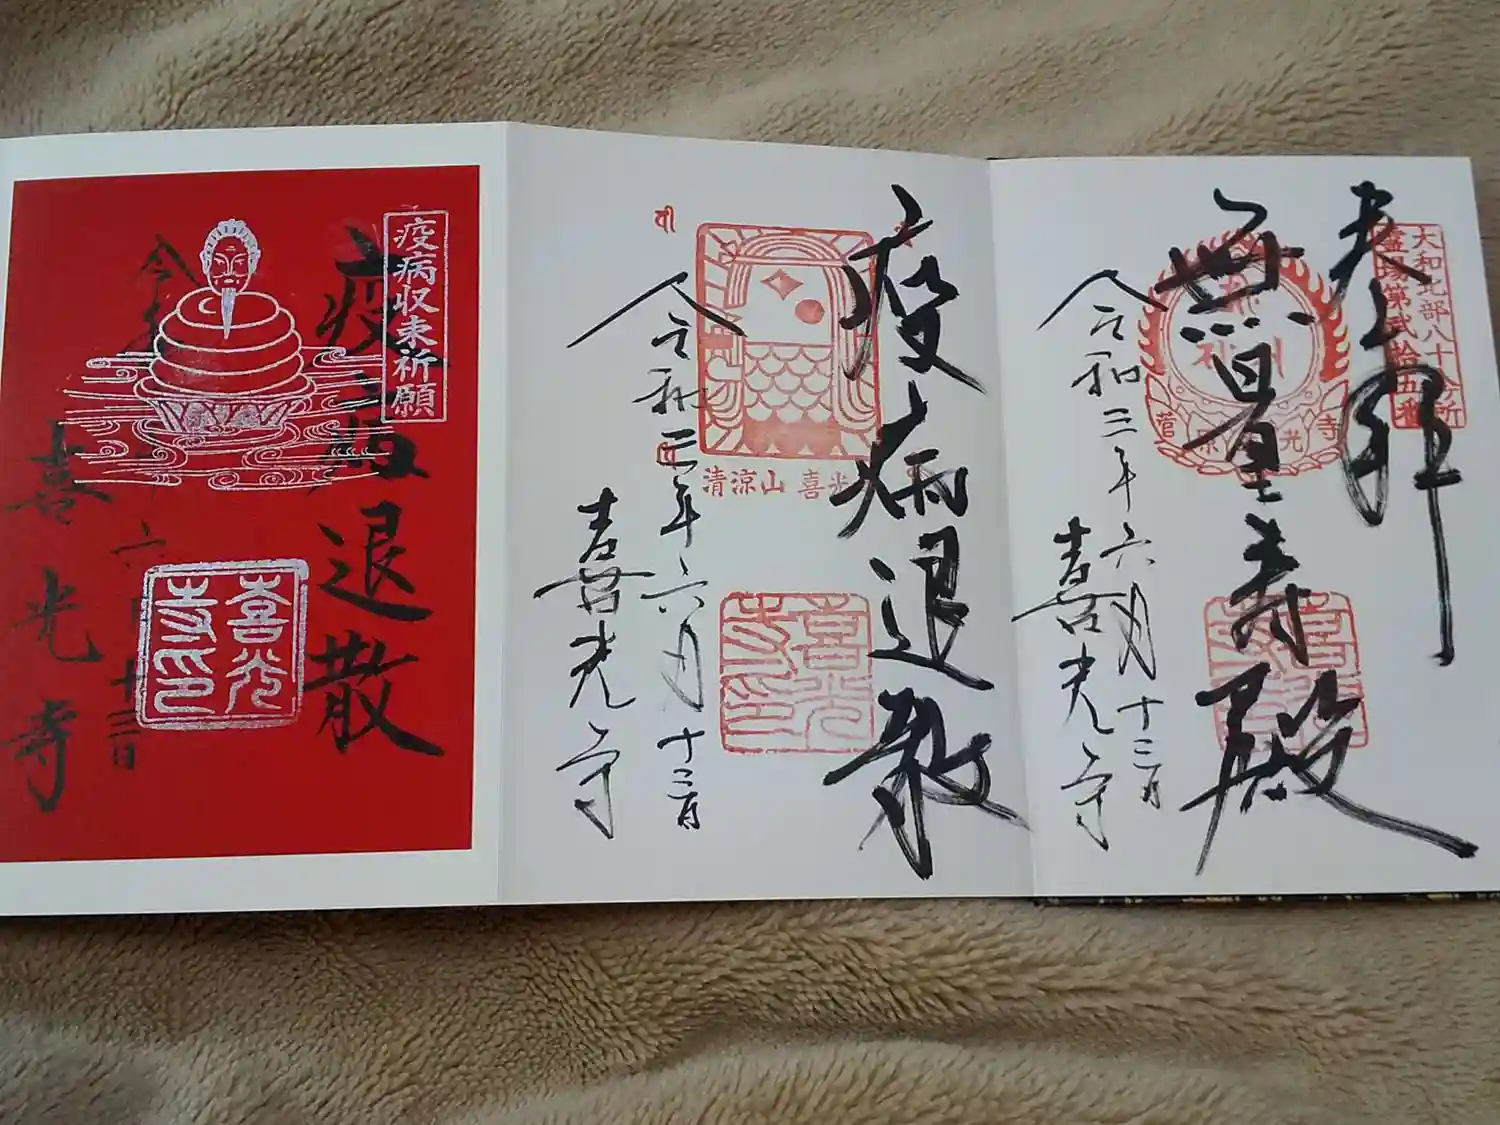 奉拝
大和北部八十八ヶ所
霊場第弐拾五番
無量寿殿
菅原 光寺
喜光寺印
令和三年六月十三日
喜光寺
疫病退散
清涼山 喜光
喜光寺印
令和三年六月十三日
喜光寺
疫病収束祈願
疫病退散
喜光寺印
喜光寺